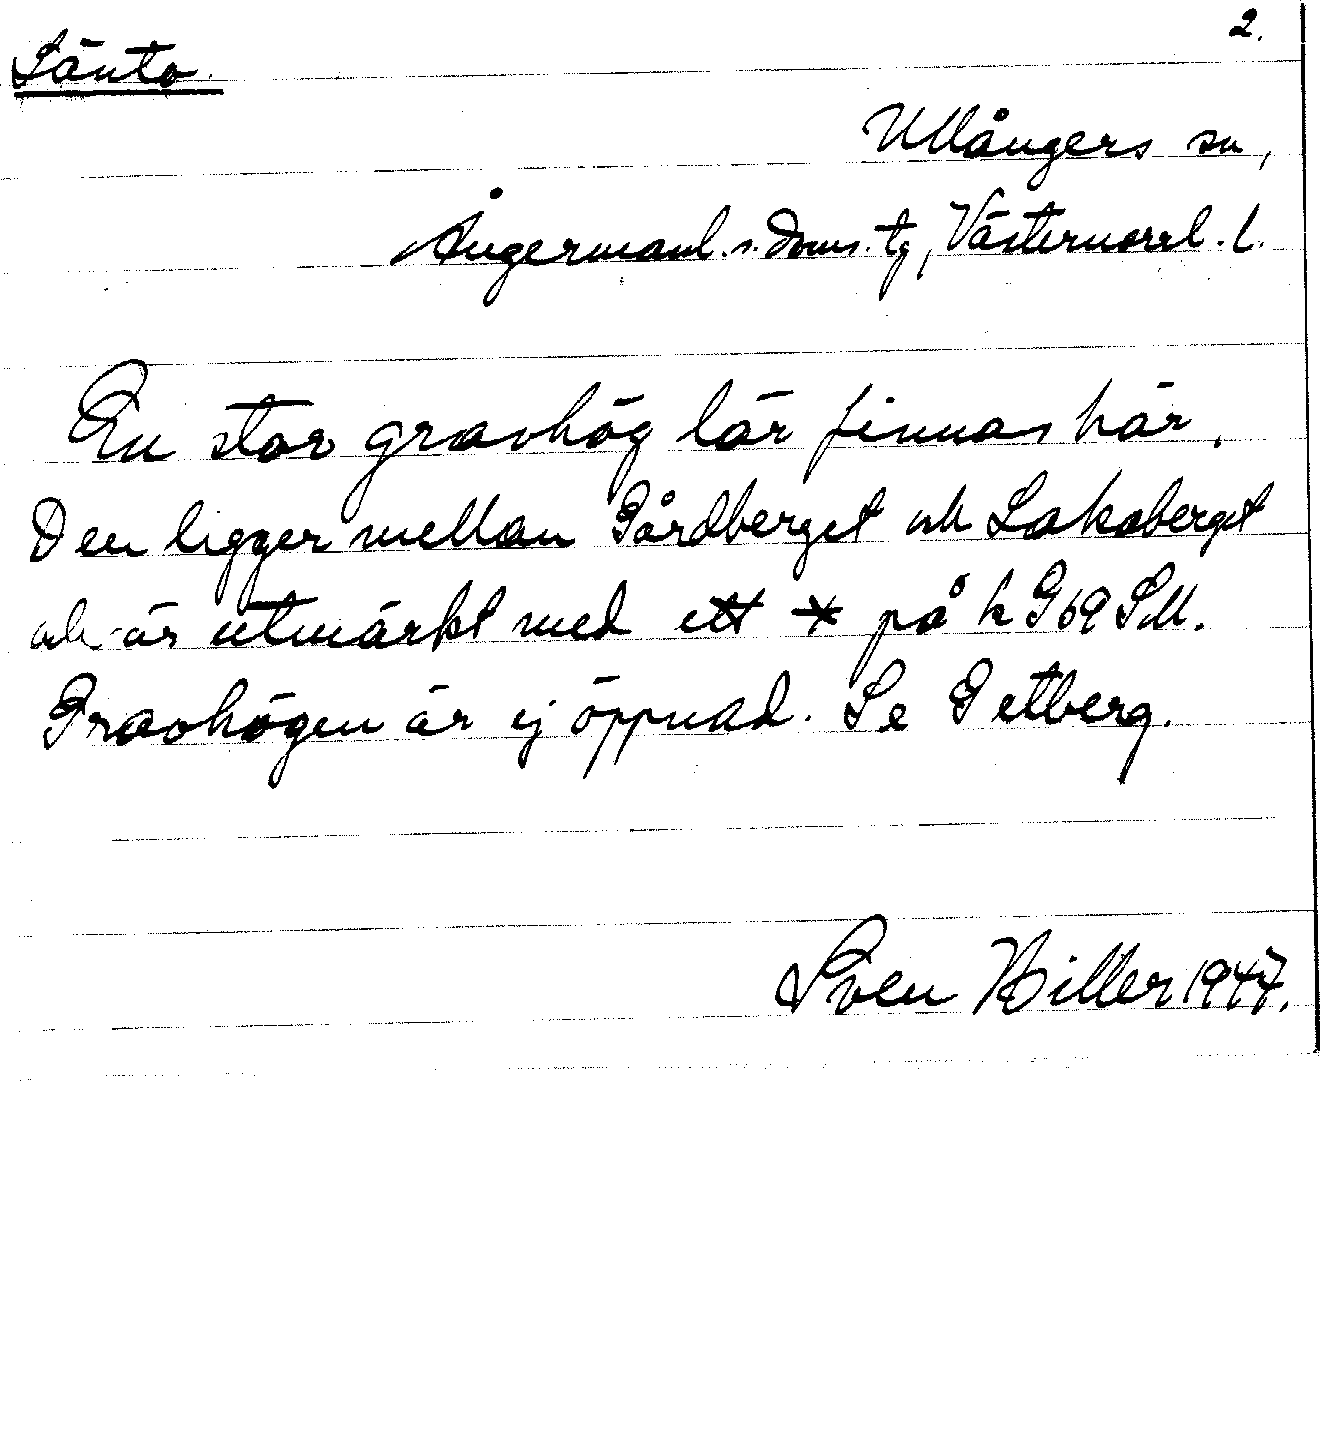 2.
Sänto.
Ullångers sn,
Ångermanl. s. doms. tg, Västernorrl. l.
En stor gravhög lär finnas här.
Den ligger mellan Gårdberget och Lakaberget
och är utmärkt med ett * på k G 69 SM.
Gravhögen är ej öppnad. Se Getberg.
Sven Hiller 1947.